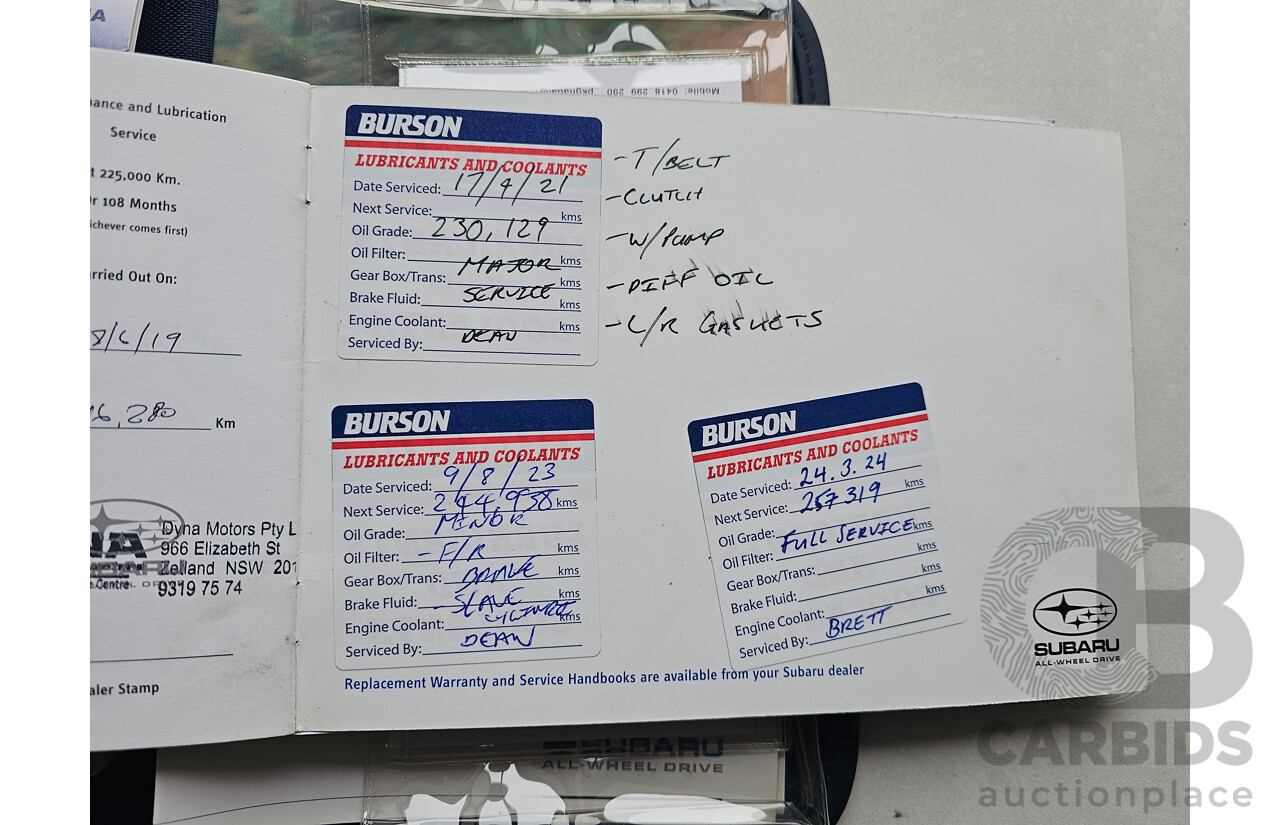 Mobile: 0418 299 290
ance and Lubrication
Service
t 225,000 Km.
r 108 Months
ichever comes first)
rried Out On:
8/6/19
6,280 Km
Dyna Motors Pty L
966 Elizabeth St
Zelland NSW 201
9319 75 74
e Centre
aler Stamp
BURSON
LUBRICANTS AND COOLANTS
Date Serviced: 17/4/21
Next Service: kms
Oil Grade: 230,129
Oil Filter: kms
MAJOR
Gear Box/Trans: kms
Brake Fluid: SERVICE kms
Engine Coolant: kms
Serviced By: DEAN
-T/BELT
-CLUTCH
-W/PUMP
-DIFF OIL
-L/R GASKETS
BURSON
LUBRICANTS AND COOLANTS
Date Serviced: 9/8/23
Next Service: 244,938 kms
Oil Grade: MINOR
Oil Filter: -F/R kms
Gear Box/Trans: kms
Brake Fluid: -SLAVE kms
CYLINDER
Engine Coolant: kms
Serviced By: DEAN
BURSON
LUBRICANTS AND COOLANTS
Date Serviced: 24.3.24
Next Service: 257319 kms
Oil Grade:
Oil Filter: FULL SERVICE kms
Gear Box/Trans: kms
Brake Fluid: kms
Engine Coolant: kms
Serviced By: BRETT
Replacement Warranty and Service Handbooks are available from your Subaru dealer
SUBARU
ALL-WHEEL DRIVE
SUBARU
ALL-WHEEL DRIVE
CARBIDS
auctionplace